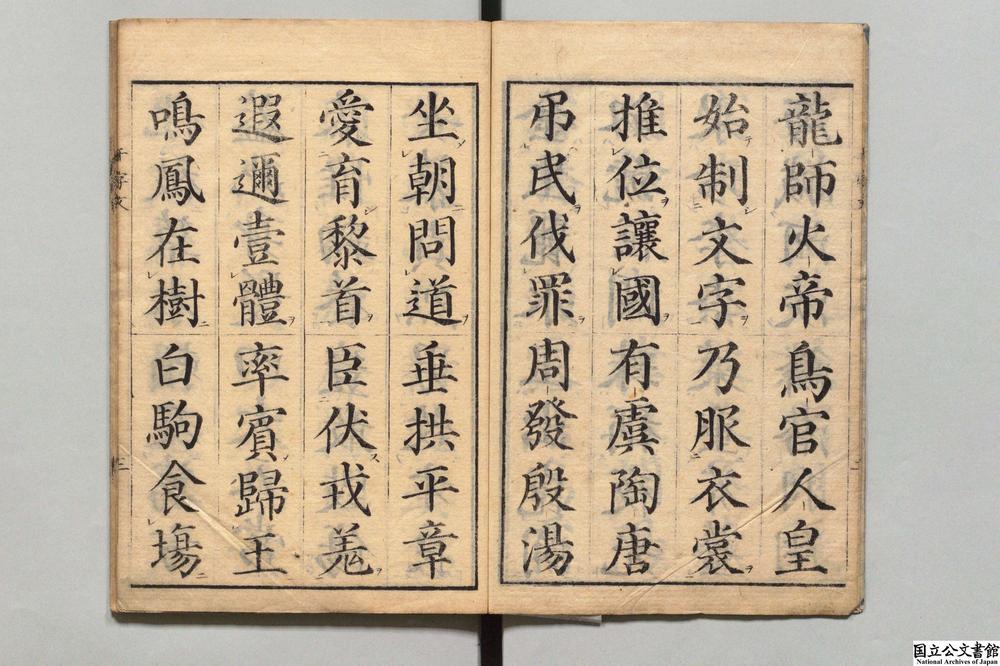 龍師火帝鳥官人皇
始制文字乃服衣裳
推位讓國有虞陶唐
弔民伐罪周發殷湯
坐朝問道垂拱平章
愛育黎首臣伏戎羌
遐邇壹體率賓歸王
鳴鳳在樹白駒食場
千字文
三
国立公文書館
National Archives of Japan